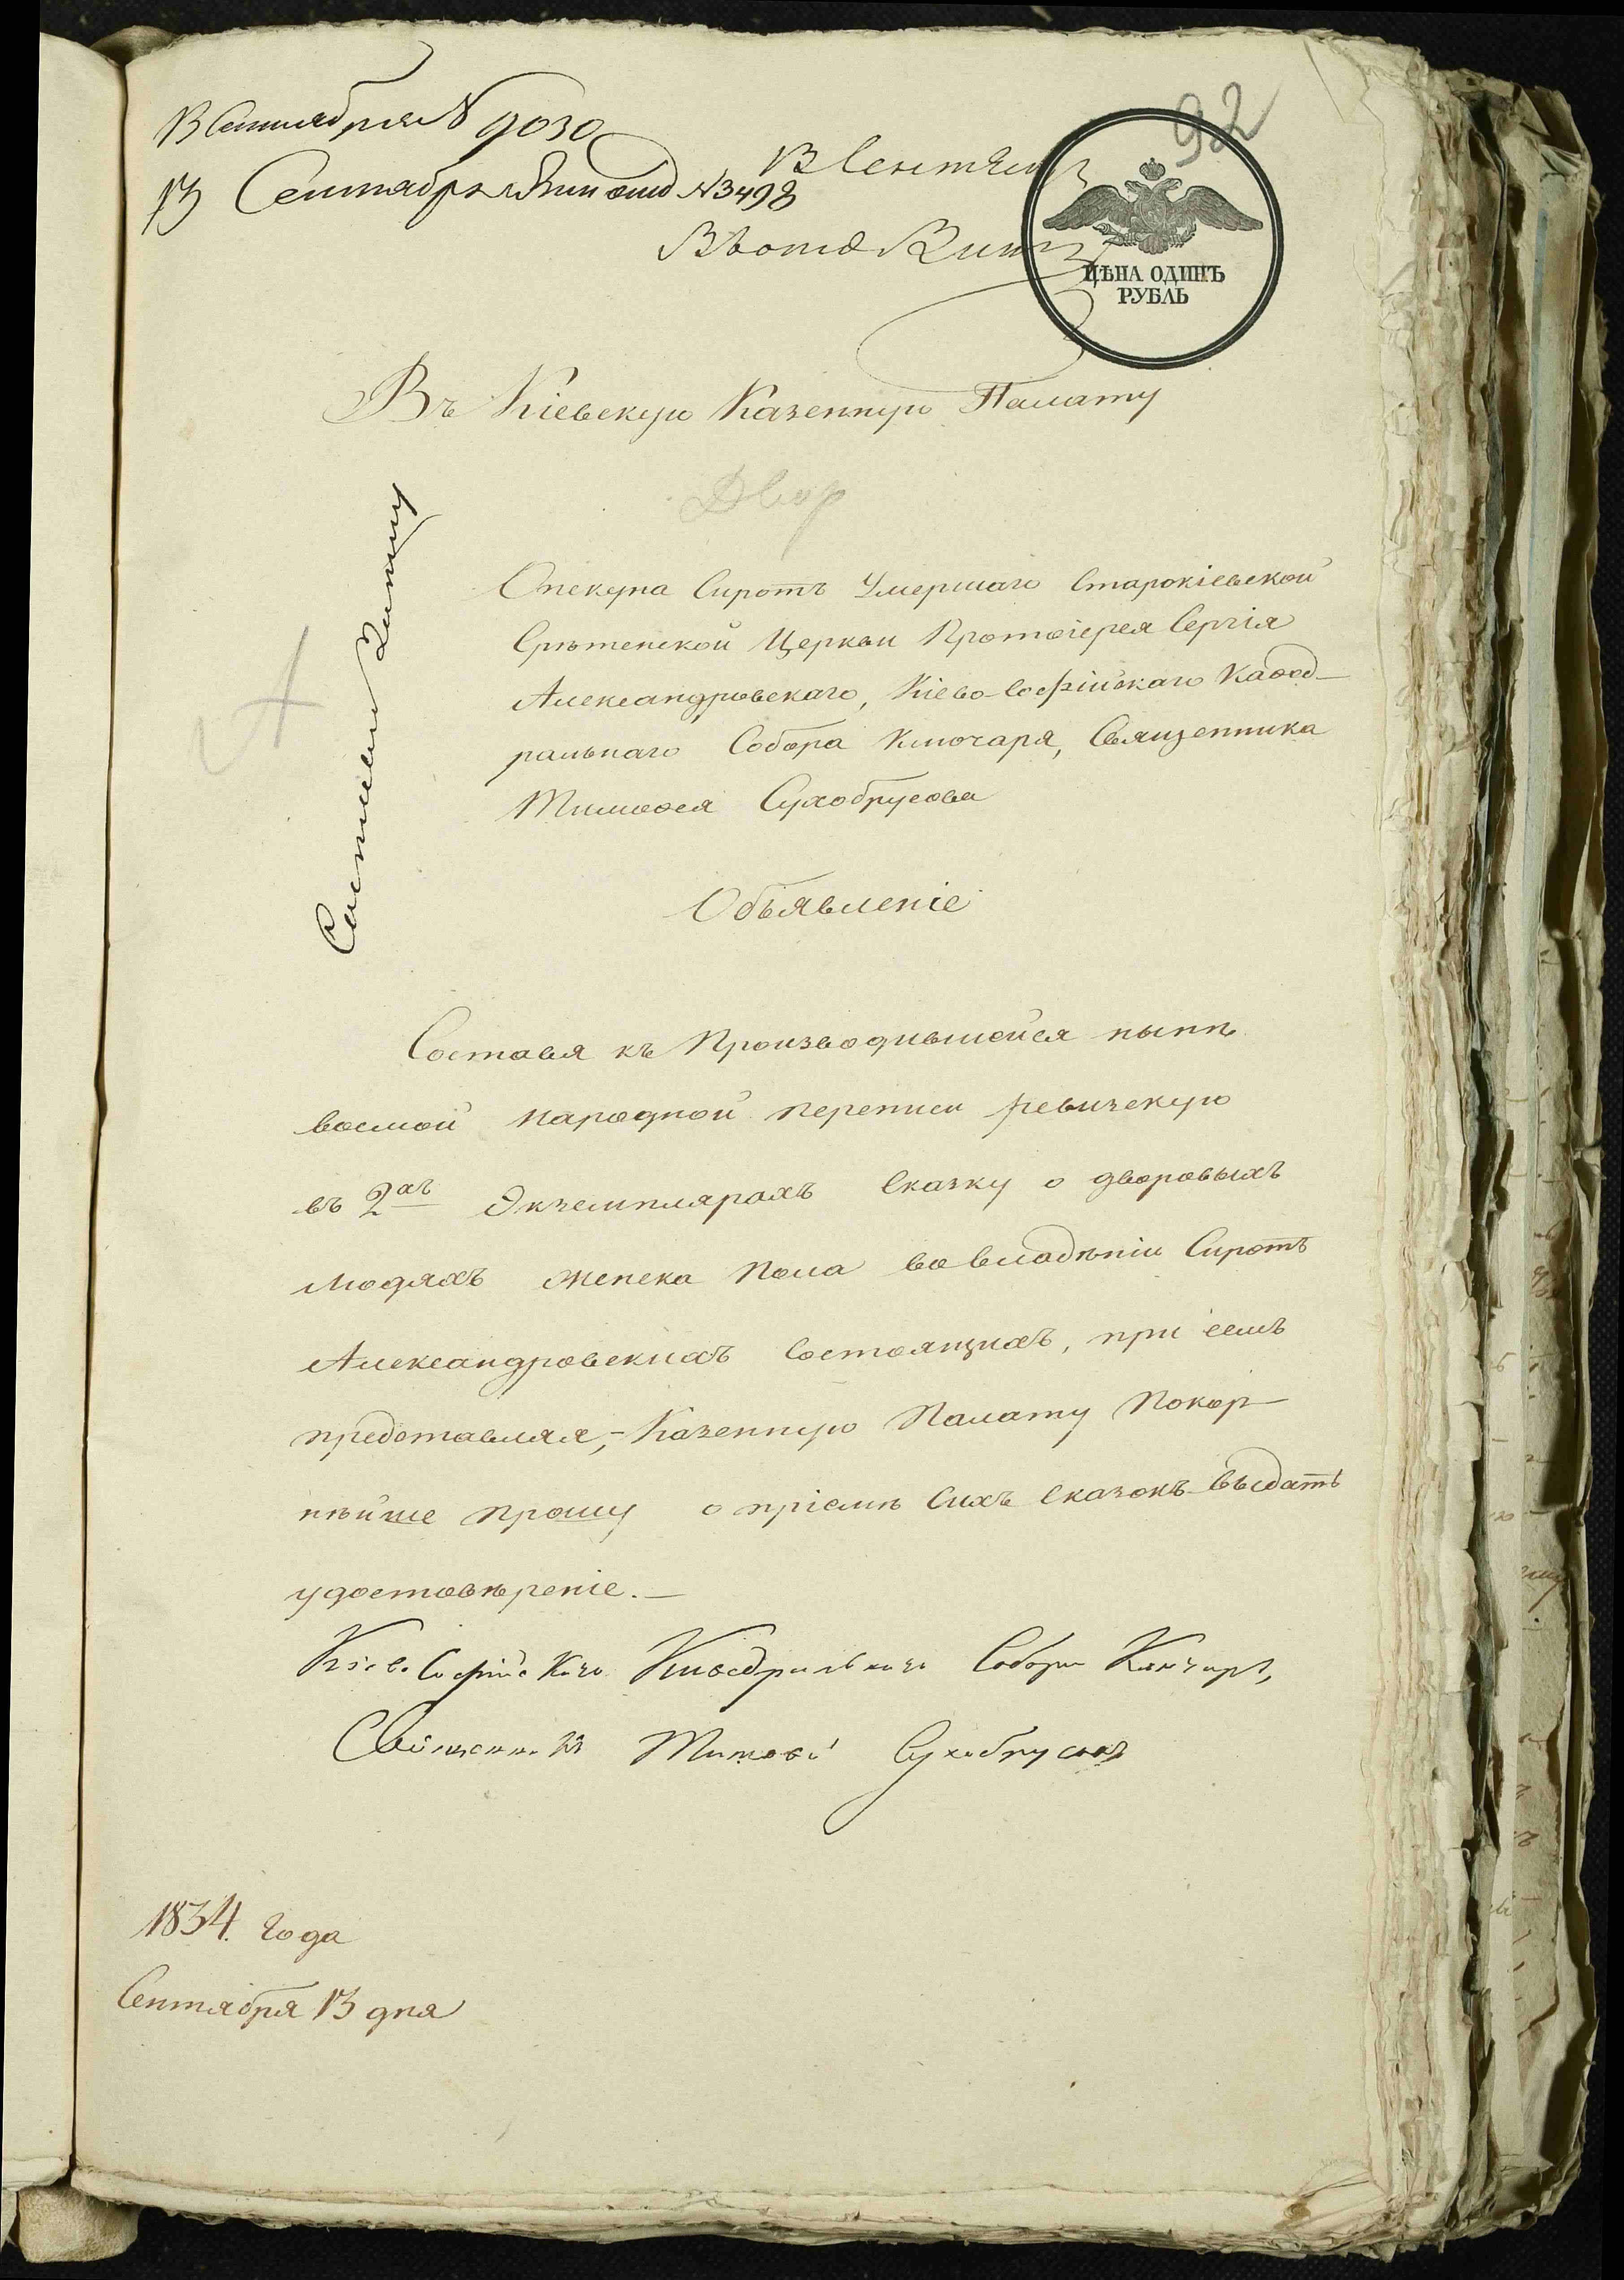 13 Сентября № 9030
92
13 Сентября № 3498
13 Сентября
ЦѢНА ОДИНЪ
РУБЛЬ
Въ Кіевскую Казенную Палату
Двор
Опекуна Сиротъ Умершаго Старокіевской
Срѣтенской Церкви Протоіерея Сергія
Александровскаго, Кіево-Софійскаго Каѳед-
ральнаго Собора Ключаря, Священника
Тимоѳея Сухобрусова
Объявленіе
Составя къ Производившейся нынѣ
восмой народной переписи ревизскую
въ 2хъ Экземплярахъ Сказку о дворовыхъ
людяхъ женска пола во владѣніи Сиротъ
Александровскихъ Состоящихъ, при семъ
представляя,- Казенную Палату Покор-
нѣйше прошу о пріемѣ Сихъ Сказокъ выдать
удостовѣреніе.—
Кіево Софійскаго Каѳедральнаго Собора Ключарь,
Священникъ Тимоѳей Сухобрусовъ
1834. Года
Сентября 13 дня